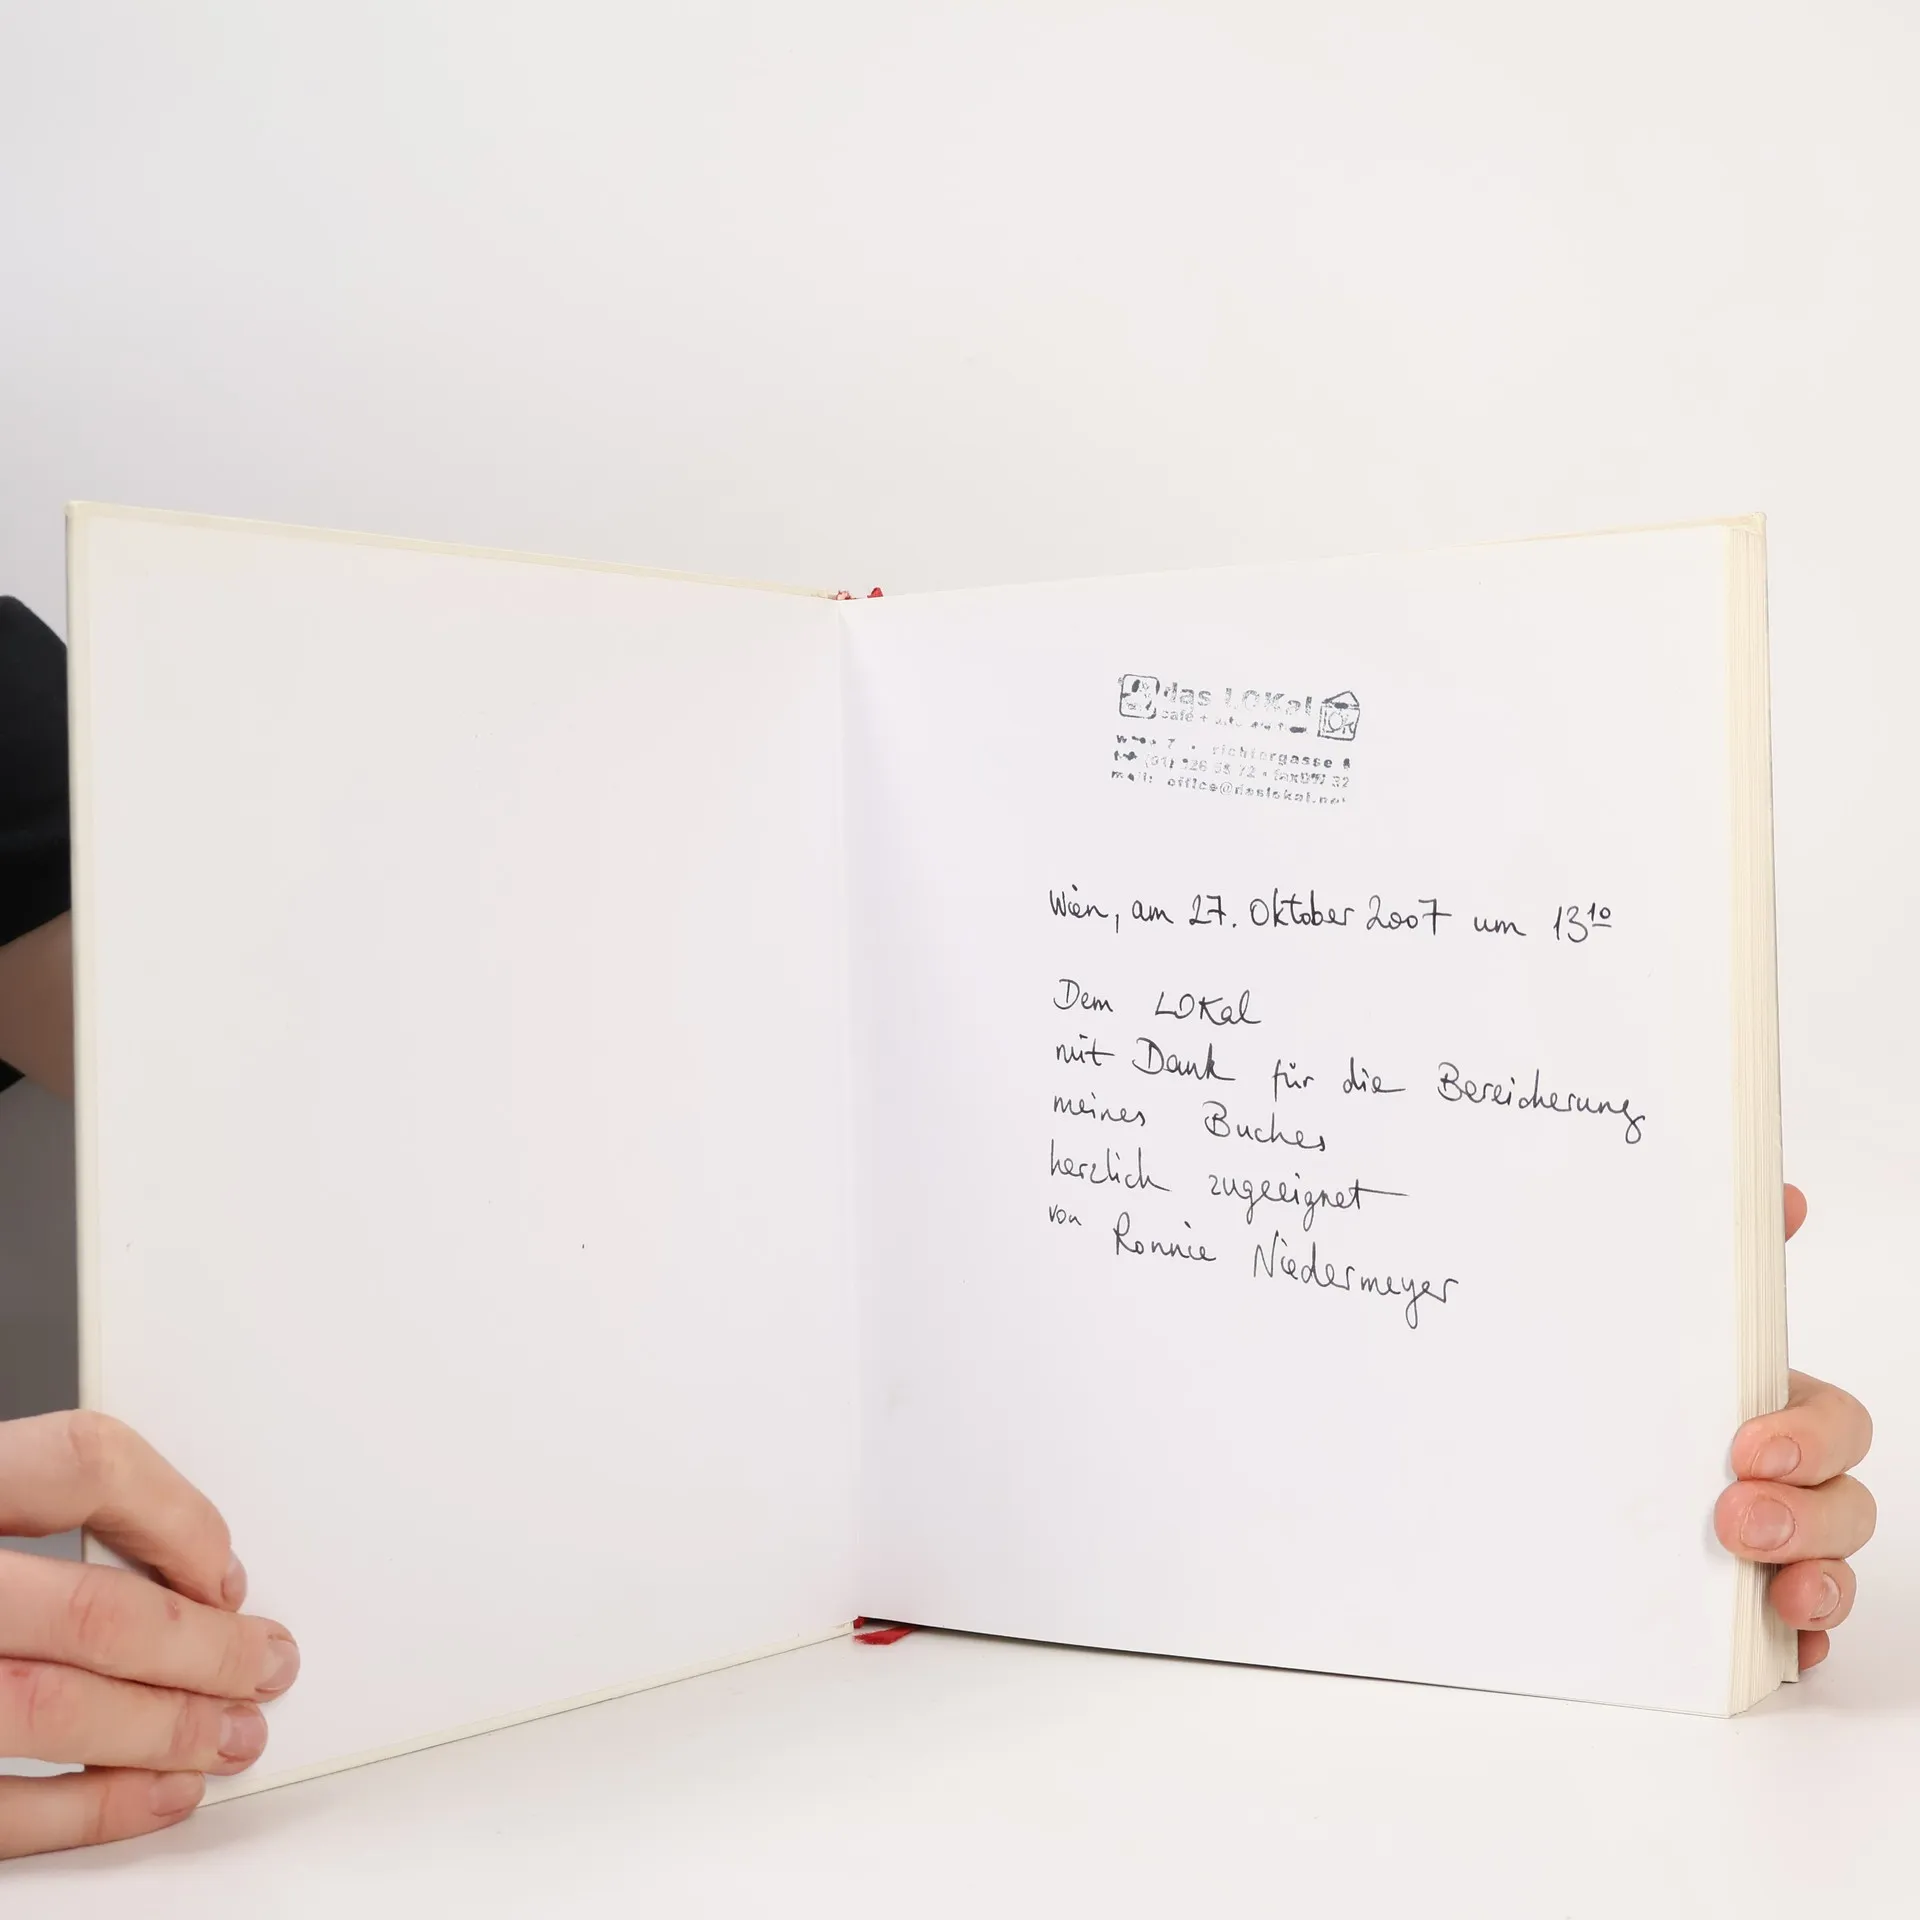 das LOKal
café +
7 • richtergasse 6
(01) 526 58 72 • fax
mail: office@daslokal.net
Wien, am 27. Oktober 2007 um 1310
Dem LOKal
mit Dank für die Bereicherung
meines Buches
herzlich zugeeignet
von Ronnie Niedermeyer